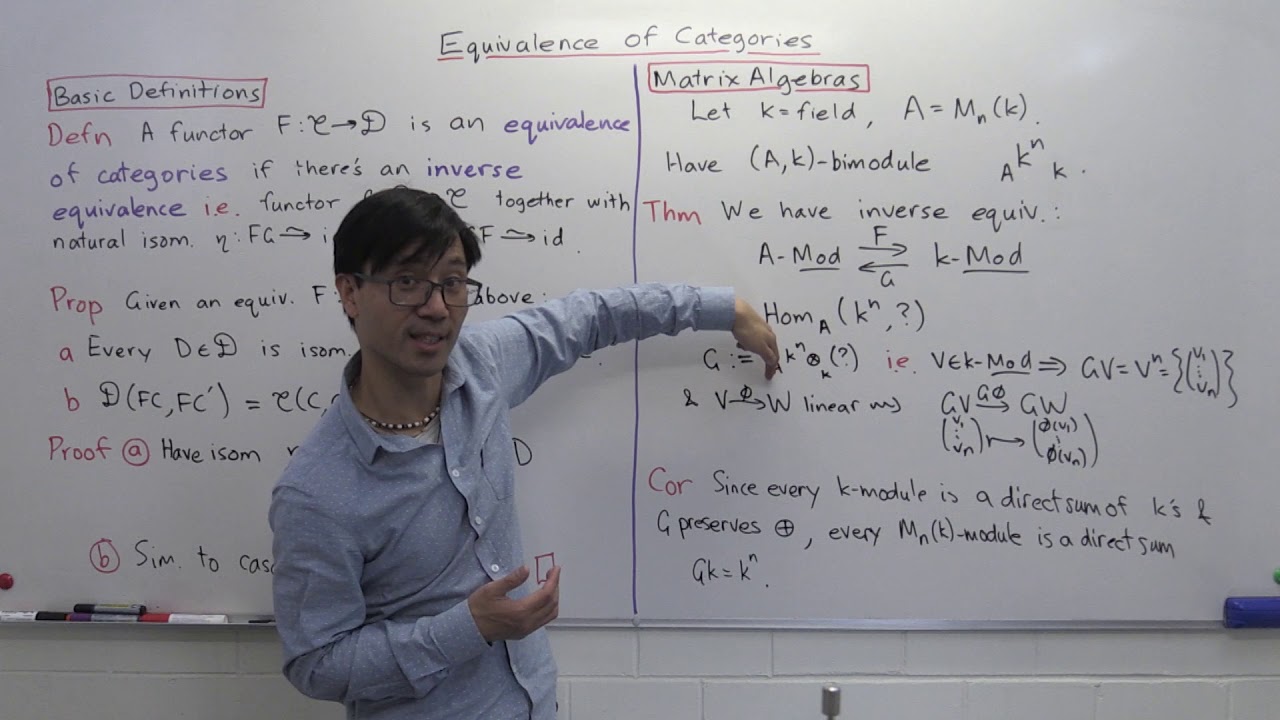 Equivalence of Categories
Basic Definitions
Defn A functor F : 𝒞 → 𝒟 is an equivalence
of categories if there's an inverse
equivalence i.e. functor 𝒞 together with
natural isom. η : FG ⥲ i F ⥲ id.
Prop Given an equiv. F : above :
a Every D ∈ 𝒟 is isom.
b 𝒟(FC, FC′) = 𝒞(C,
Proof ⓐ Have isom D
ⓑ Sim. to cas □
Matrix Algebras
Let k = field, A = Mₙ(k).
Have (A, k)-bimodule ₐkⁿₖ.
Thm We have inverse equiv. :
F
A-Mod ⇄ k-Mod
G
Hom_A (kⁿ, ?)
G := kⁿ ⊗ₖ (?) i.e. V ∈ k-Mod ⟹ GV = Vⁿ = {(v₁ ⋮ vₙ)}
& V →^ϕ W linear ⇝ GV →^Gϕ GW
(v₁ ⋮ vₙ) ↦ (ϕ(v₁) ⋮ ϕ(vₙ))
Cor Since every k-module is a direct sum of k's &
G preserves ⊕, every Mₙ(k)-module is a direct sum
Gk = kⁿ.